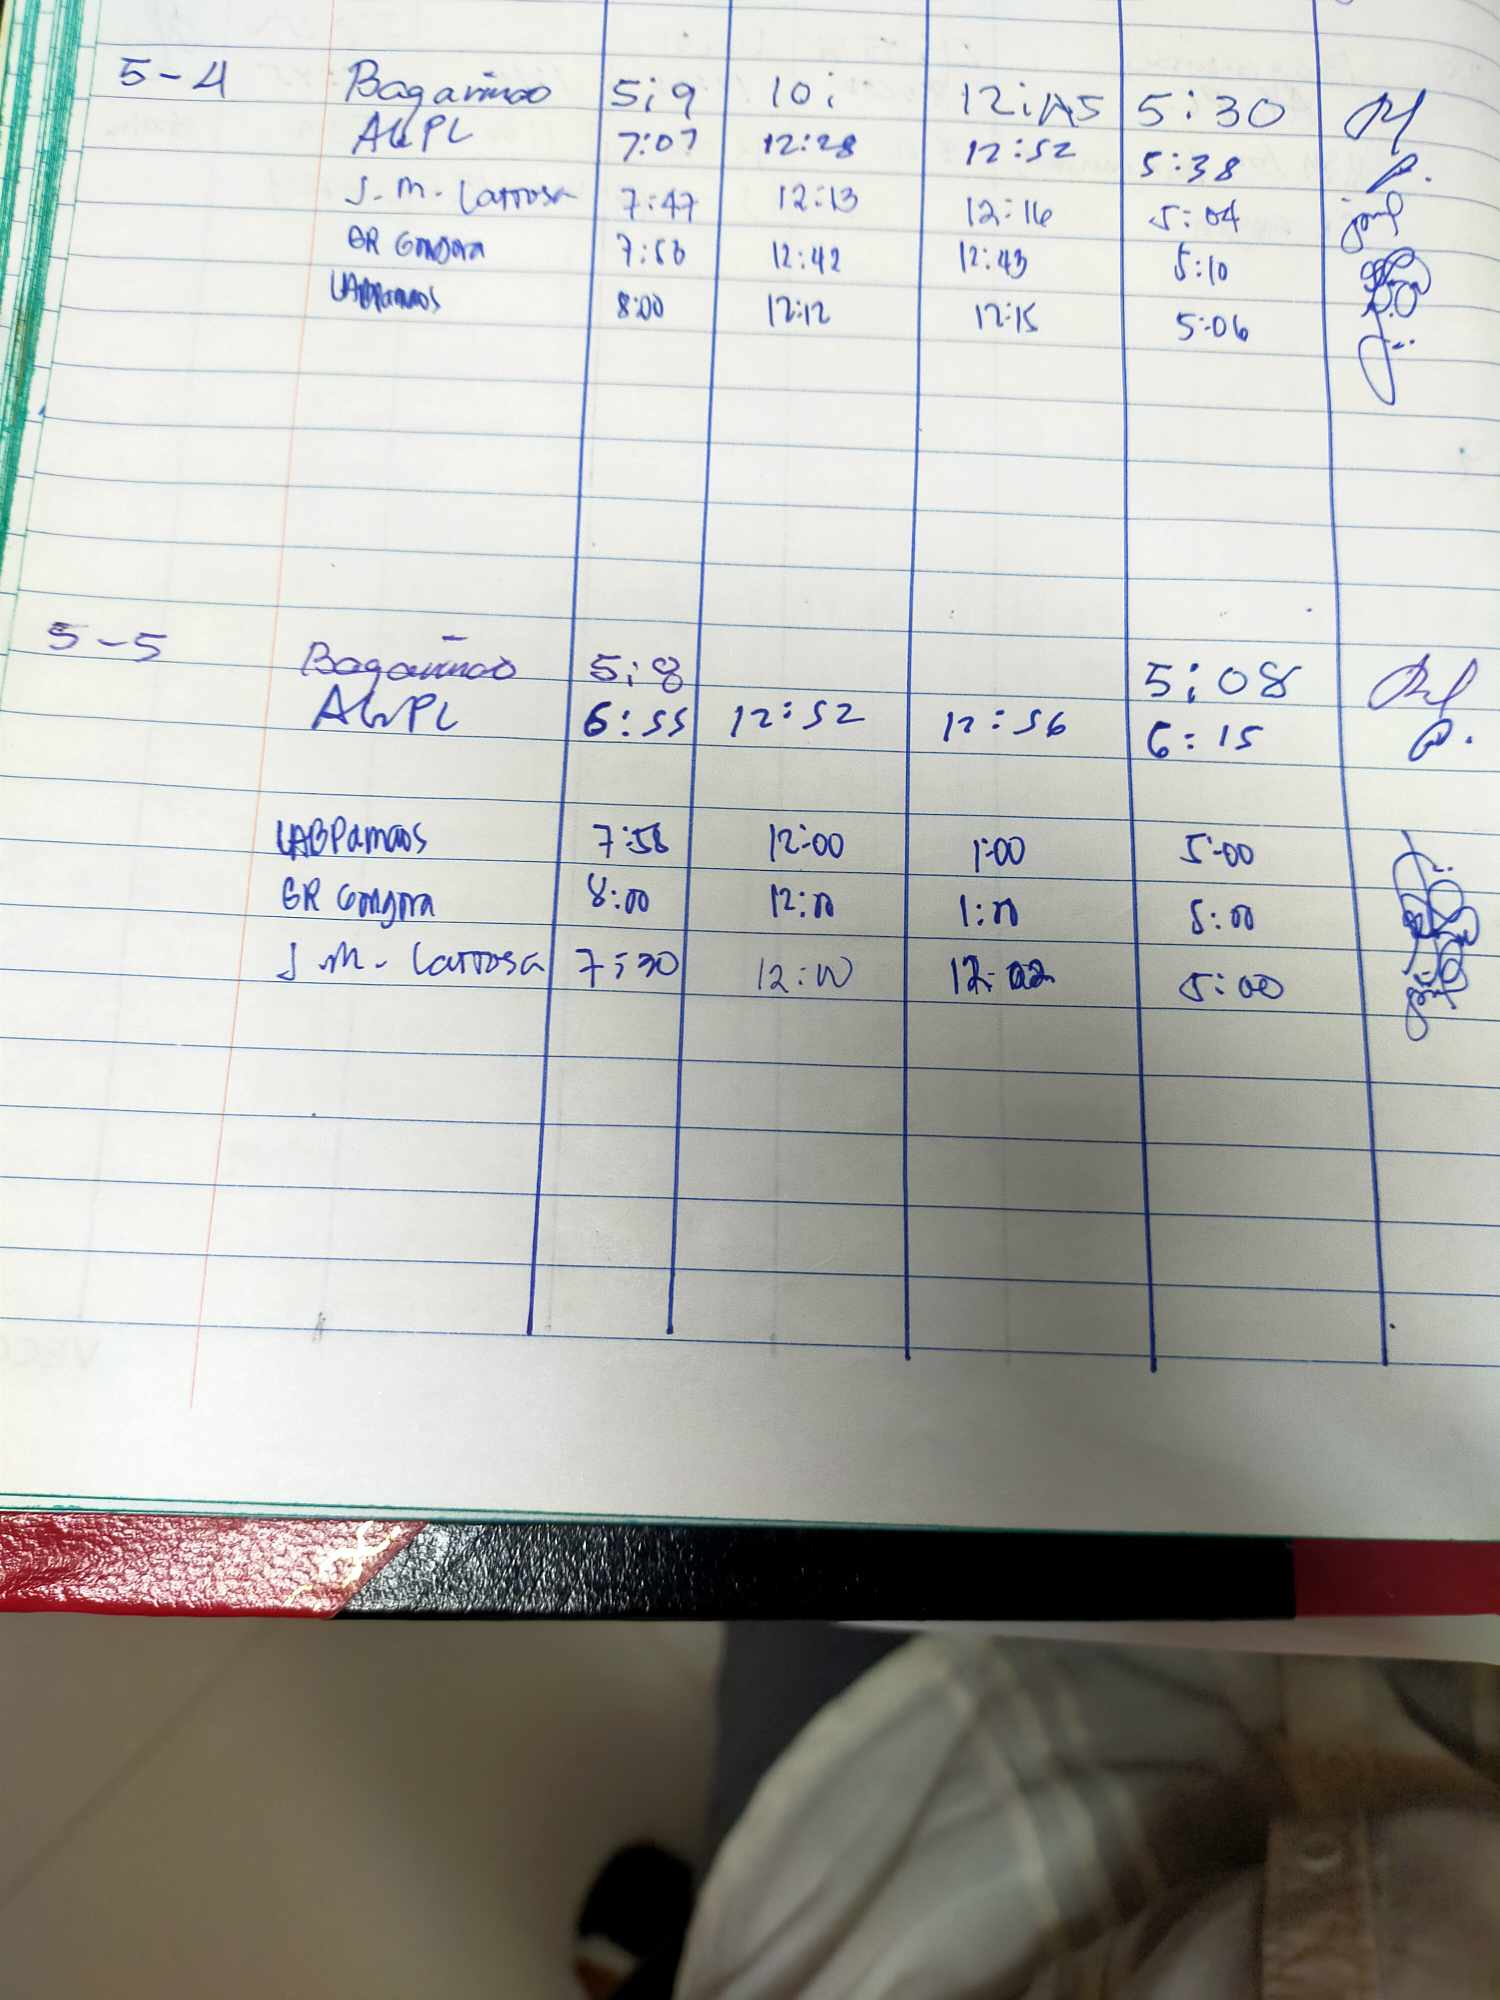 5-4 Bagarinao 5;9 10; 12:45 5:30
AGPL 7:07 12:28 12:52 5:38
J.M. Larrosa 7:47 12:13 12:16 5:04
GR Gongora 7:56 12:42 12:43 5:10
8:00 12:12 12:15 5:06
5-5 Bagarinao 5;8 5;08
AGPL 6:55 12:52 12:56 6:15
LABPamaos 7:58 12:00 1:00 5:00
GR Gongora 8:00 12:00 1:00 5:00
J.M. Larrosa 7:30 12:00 12:02 5:00